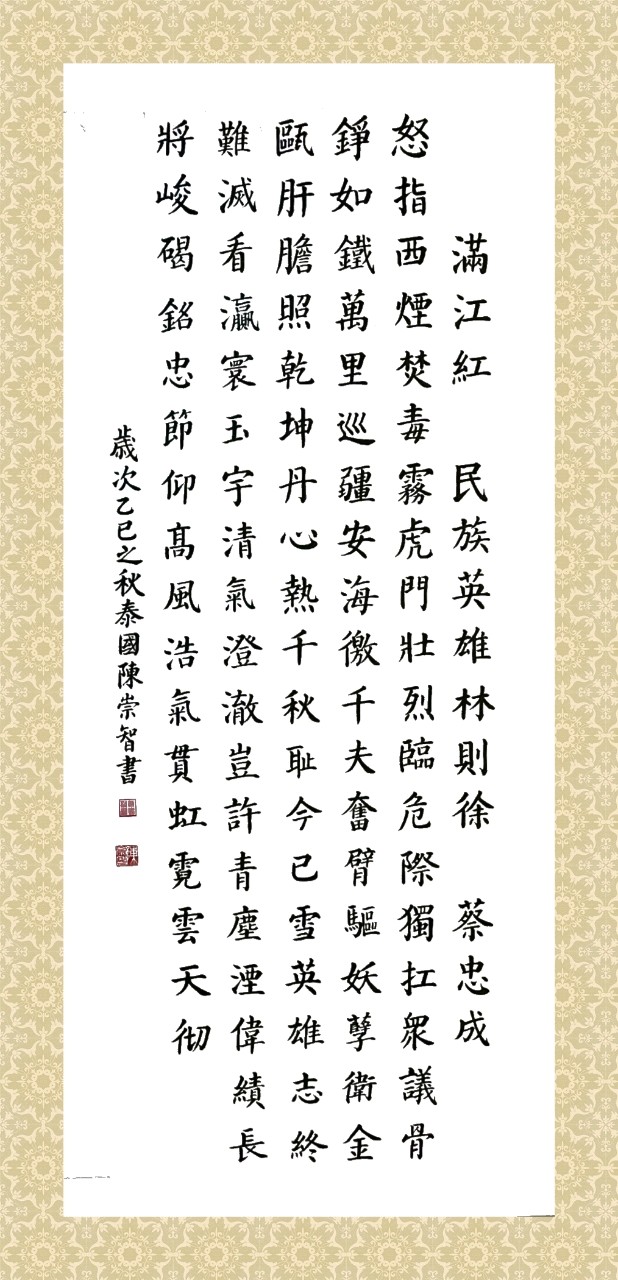 滿江紅 民族英雄林則徐 蔡忠成
怒指西煙焚毒霧虎門壯烈臨危際獨扛衆議骨
錚如鐵萬里巡疆安海徼千夫奮臂驅妖孽衛金
甌肝膽照乾坤丹心熱千秋恥今已雪英雄志終
難滅看瀛寰玉宇清氣澄澈豈許青塵湮偉績長
將峻碣銘忠節仰高風浩氣貫虹霓雲天彻
歲次乙巳之秋泰國陳崇智書